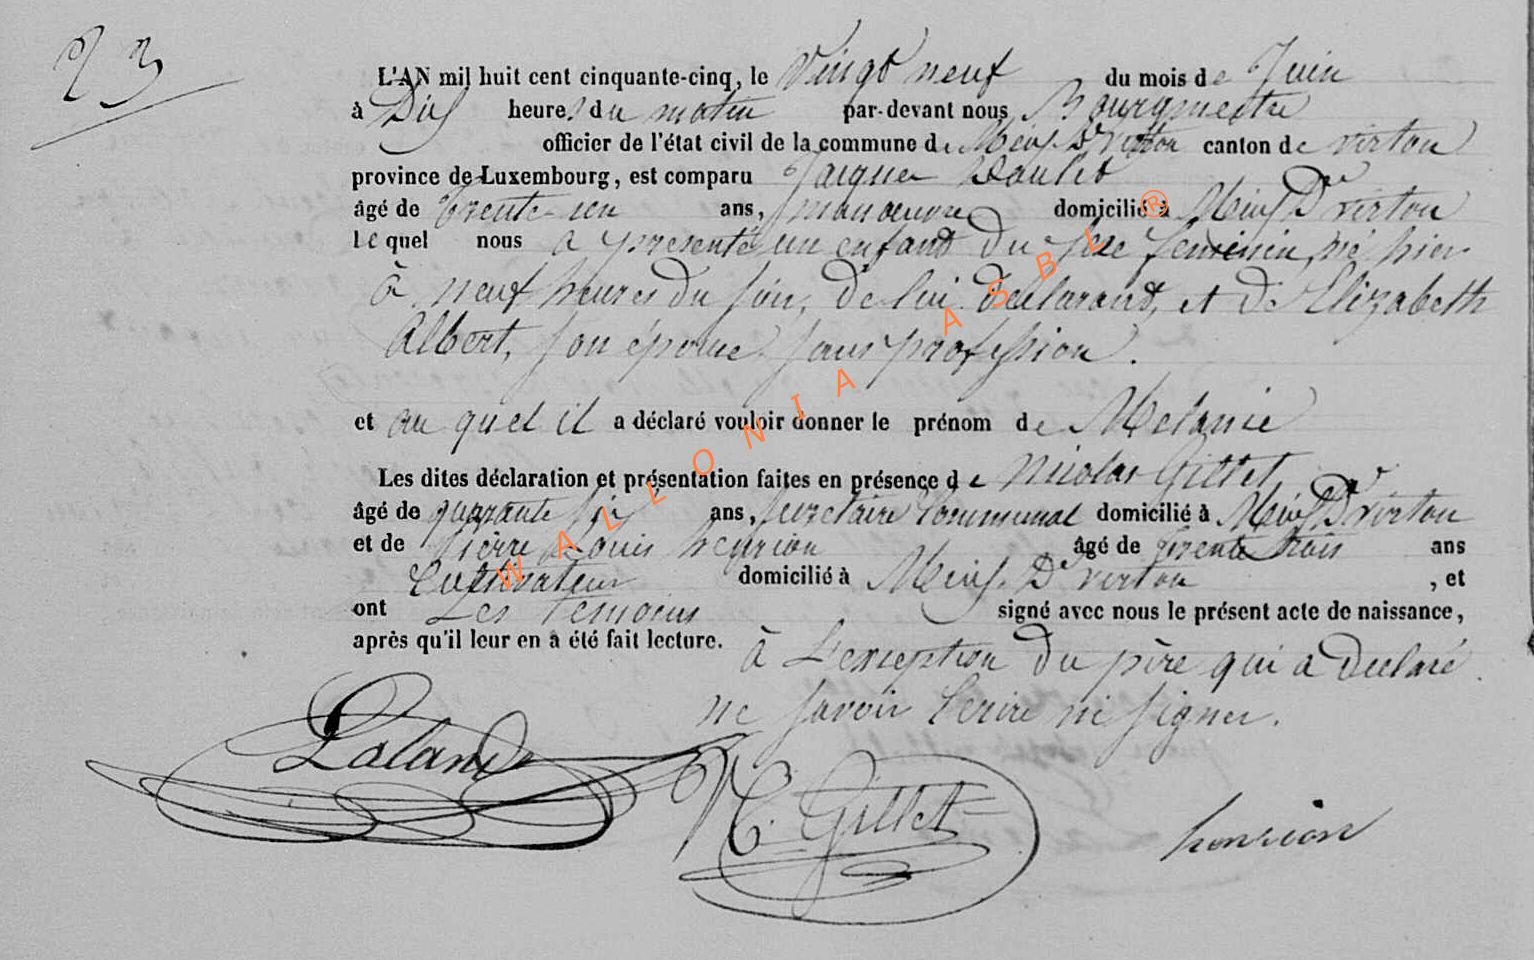 23
L'AN mil huit cent cinquante-cinq, le Vingt neuf du mois de Juin
à Dix heures du matin par-devant nous Bourgmestre
officier de l'état civil de la commune de Meix Dt virton canton de virton
province de Luxembourg, est comparu Jacques
âgé de trente-un ans, manœuvre domicilié à Meix Dt virton
lequel nous a présenté un enfant du sexe feminin, né hier
à neuf heures du soir, de lui declarant, et de Elizabeth
Albert, son épouse sans profession.
et au quel il a déclaré vouloir donner le prénom de Melanie
Les dites déclaration et présentation faites en présence de Nicolas Gillet
âgé de quarante six ans, secretaire Communal domicilié à Meix Dt virton
et de Pierre Louis henrion âgé de trente trois ans
Cultivateur domicilié à Meix Dt virton , et
ont Les témoins signé avec nous le présent acte de naissance,
après qu'il leur en a été fait lecture. à L'exception du père qui a declaré
ne savoir écrire ni signer.
Lalande
N. C. Gillet
henrion
WALLONIA ASBL ®